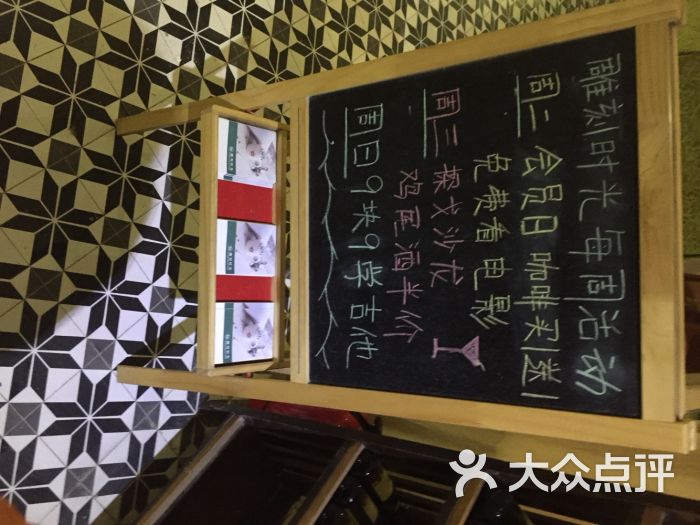 雕刻时光每周活动
周二 会员日 咖啡买1送1
免费看电影
周三 探戈沙龙
鸡尾酒半价
周日9块9学吉他
大众点评